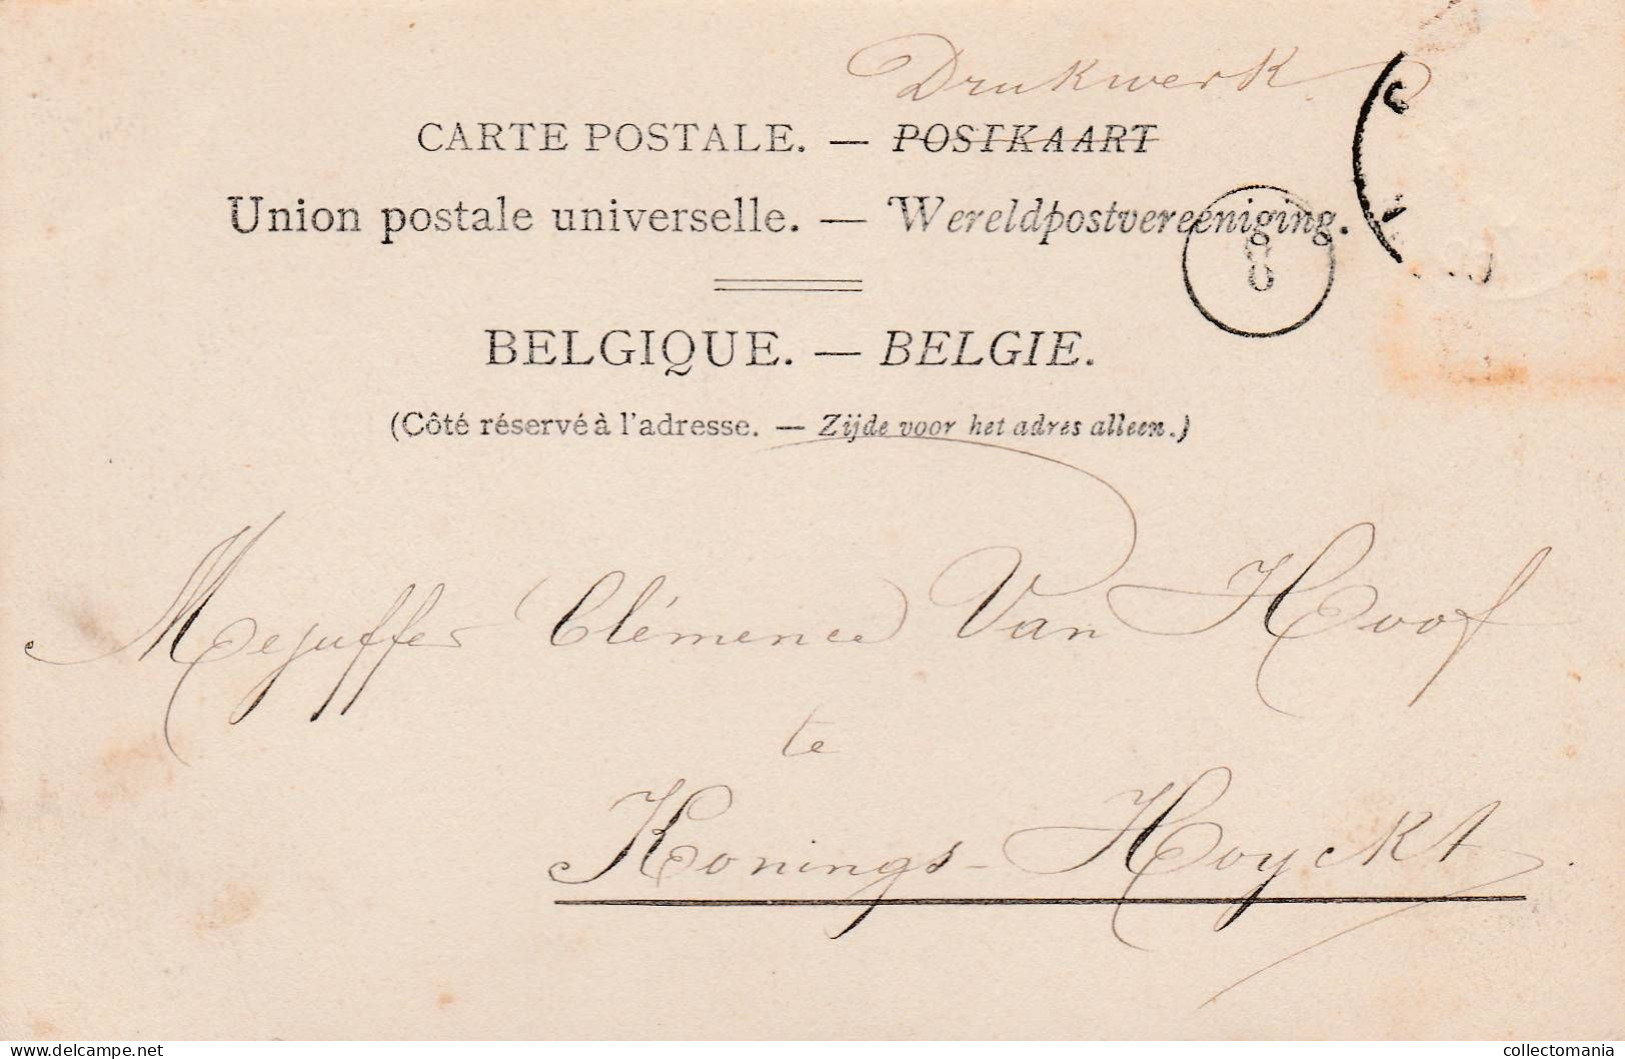 Drukwerk
CARTE POSTALE. — POSTKAART
Union postale universelle. — Wereldpostvereeniging.
8
BELGIQUE. — BELGIE.
(Côté réservé à l'adresse. — Zijde voor het adres alleen.)
Mejuffer Clémence Van Hoof
te
Konings-Hoyckt.
collectomania